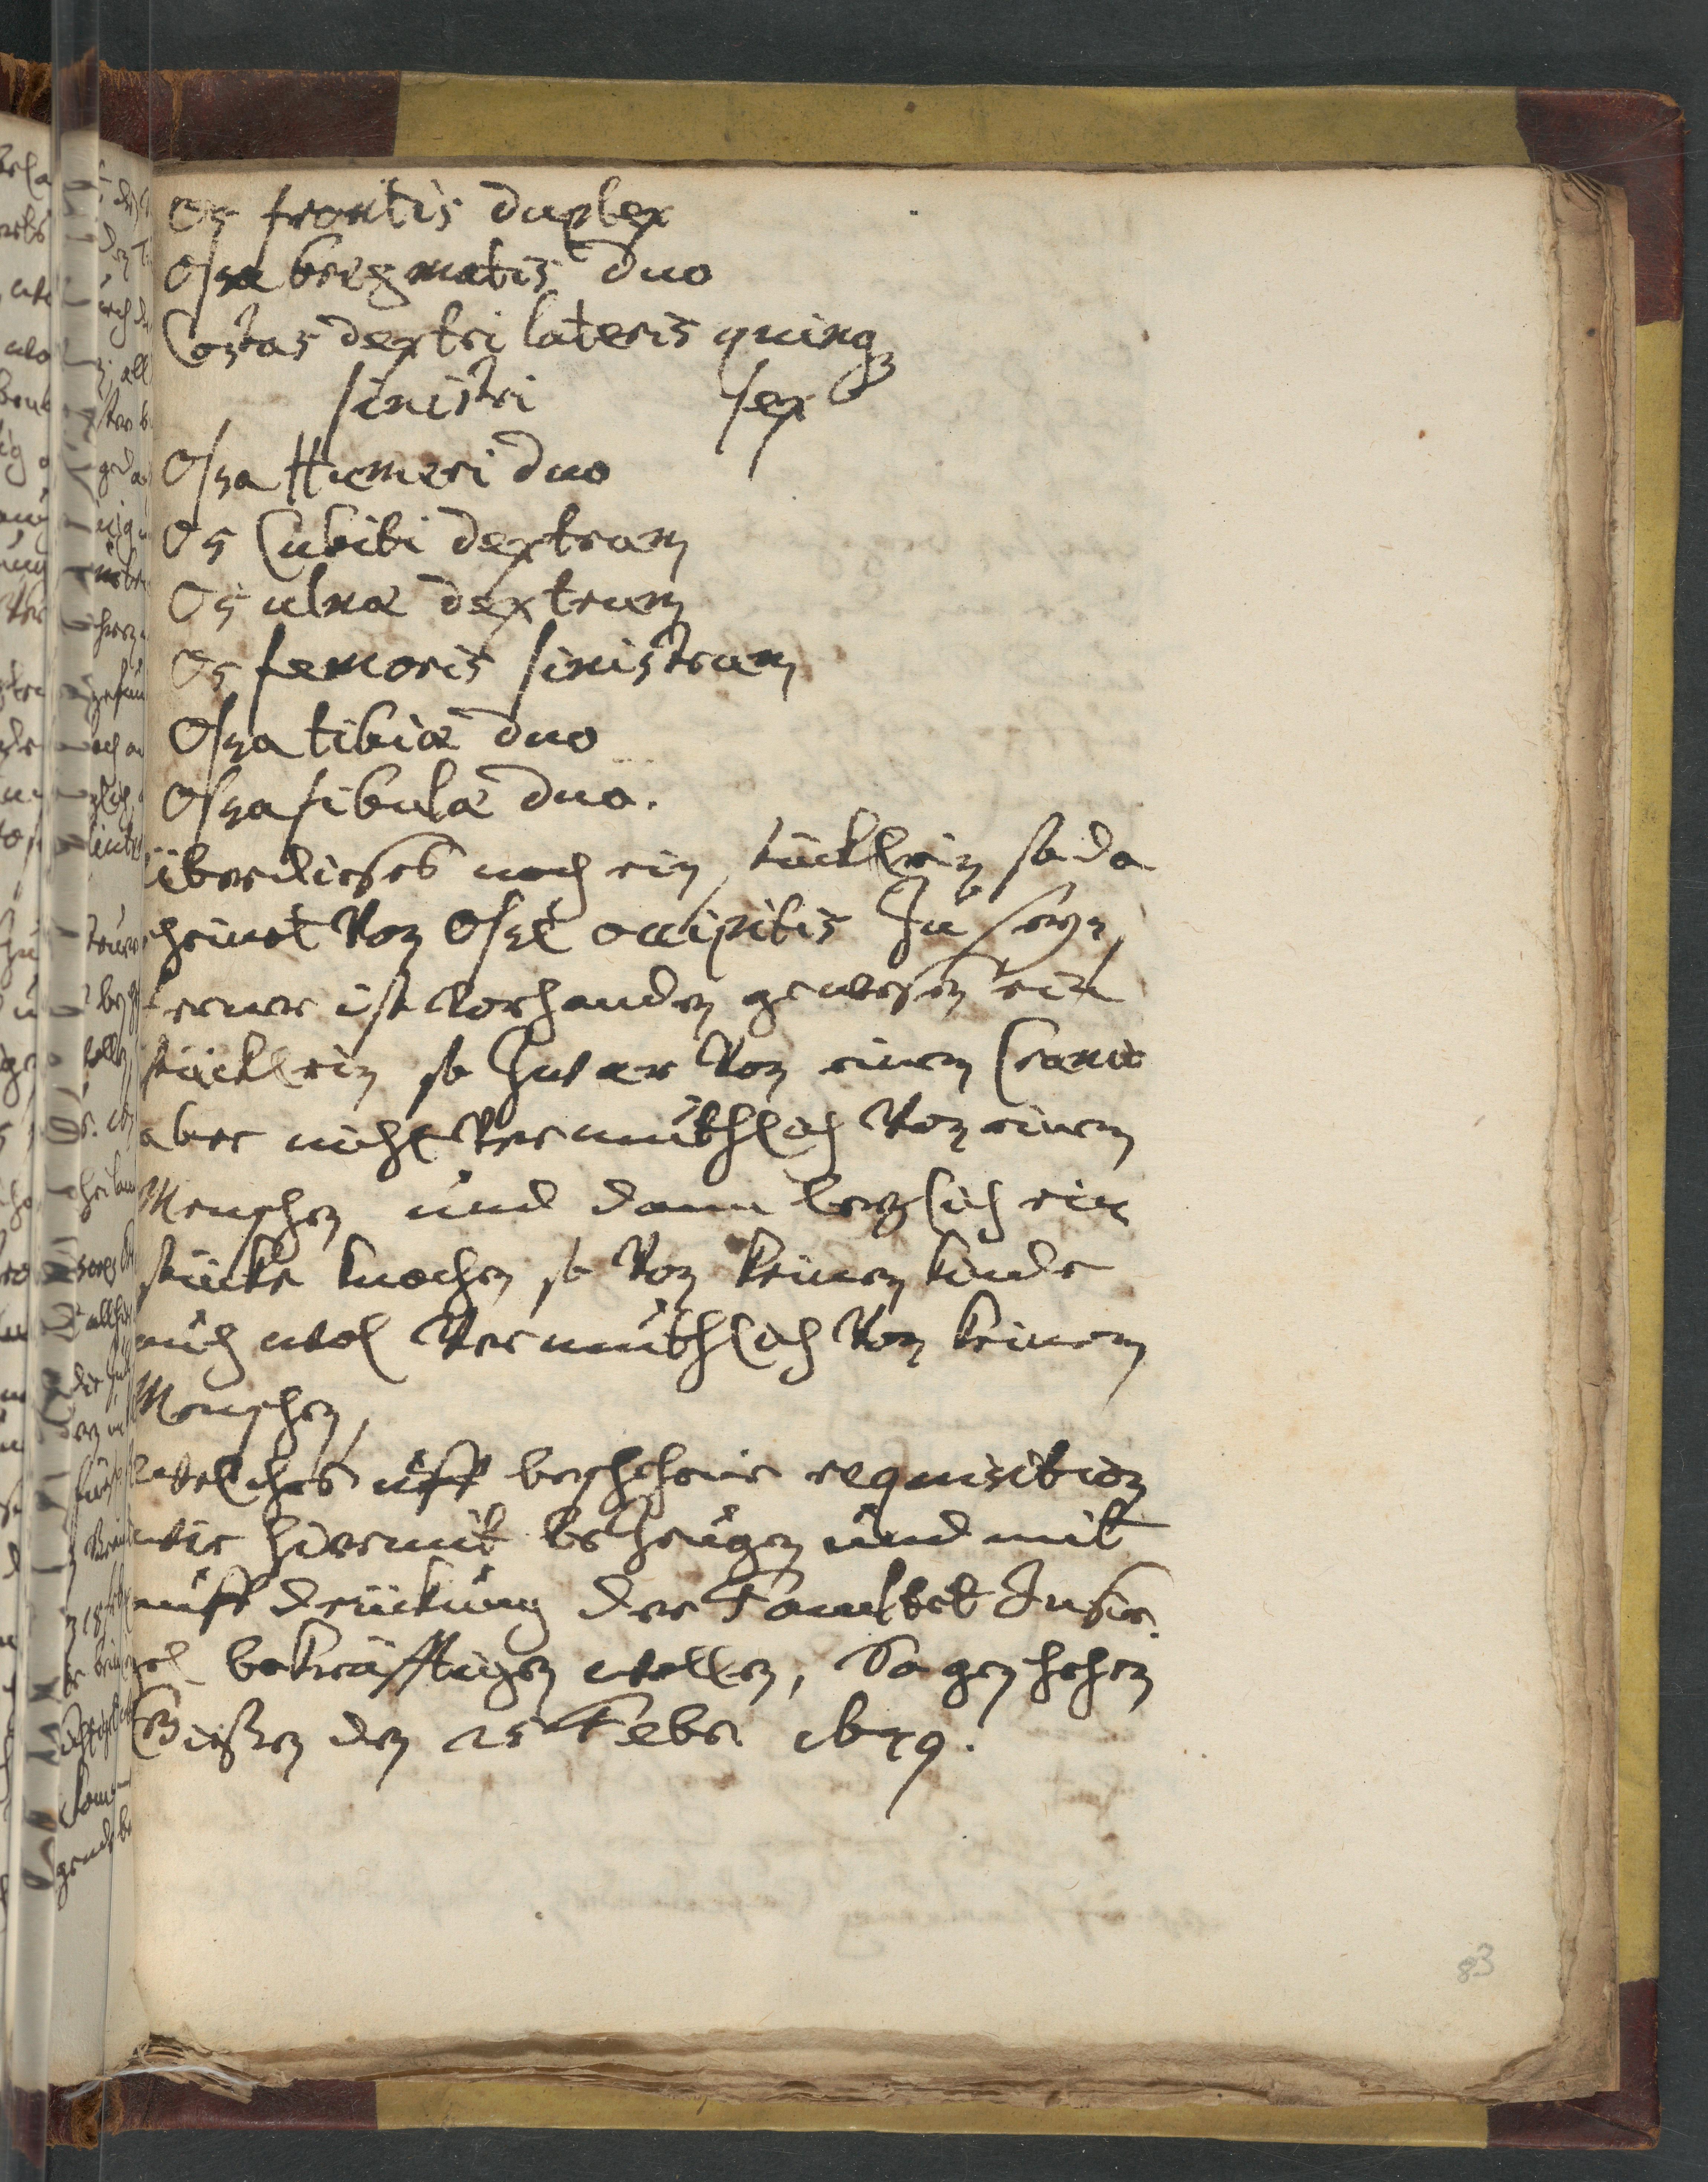 Os frontis duplex
Ossa bregmatis duo
Costas dextri lateris quinq3
sinistri sex
Ossa Humeri duo
Os Cubiti dextrum
Os ulnæ dextrum
Os femoris sinistrum
Ossa tibiæ duo
Ossa fibulæ duo.
überdieses noch ein stücklein so da
scheinet Von Osse occipitis Zu seyn,
ferner ist Vorhanden gewesen ein
stücklein so Zwar Von einem Cranio
aber nicht Vermuthlich Von einem
Menschen und dann letzlich ein
stücke knochen so Von keinem kinde
auch wol Vermuthlich Von keinem
Menschen,
welches uff beschehene requisition
wir hiermit bezeugen und mit
auffdrückung der Facultet Insie-
gel bekräfftigen wollen, So geschehen
Gießen den 25 Febr 1679.
83